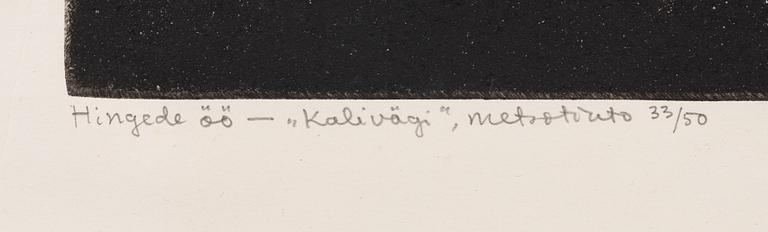 Hingede öö — „Kalivägi", metsotinto 33/50